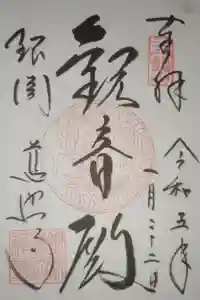 奉拝
令和五年
一月二十二日
觀音殿
銀閣
慈照寺